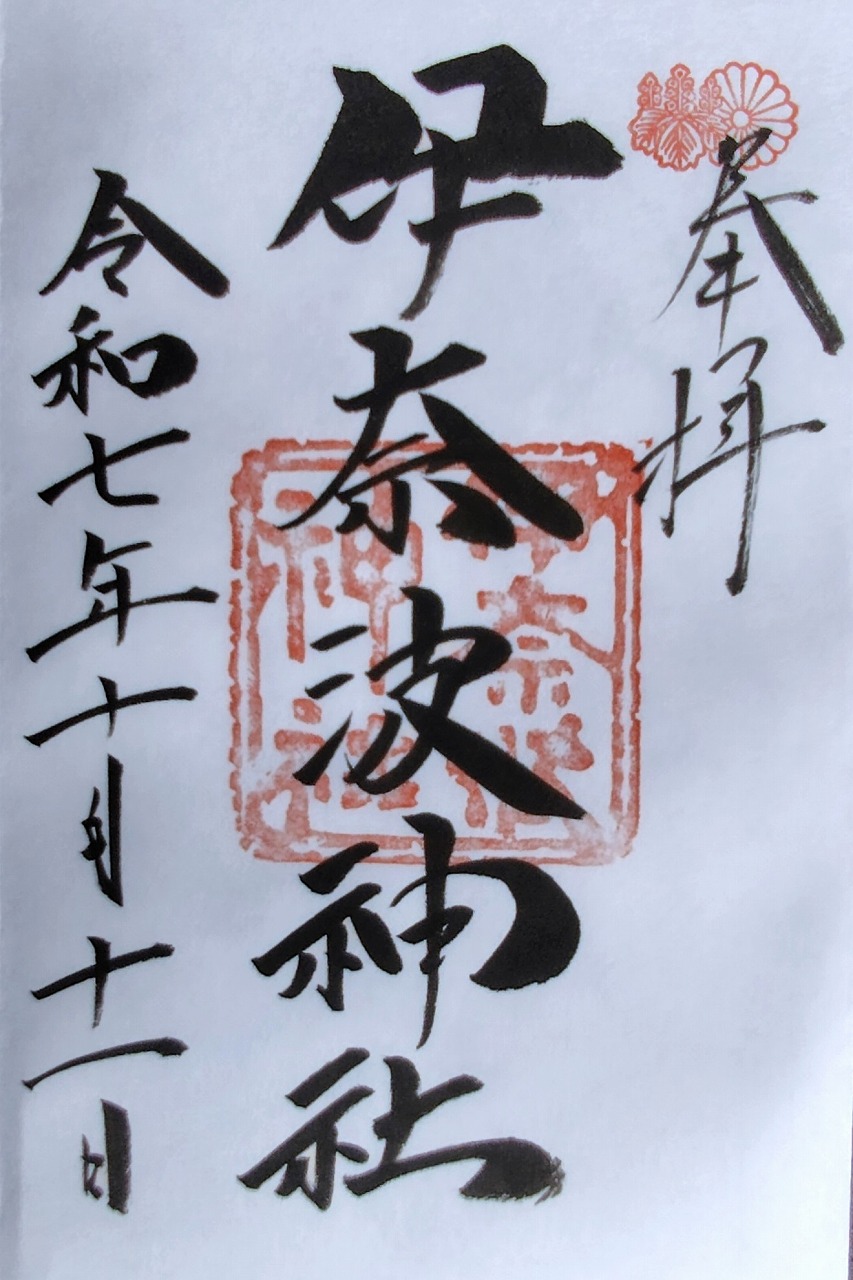 奉拝
伊奈波神社
伊奈波神社
令和七年十月十一日